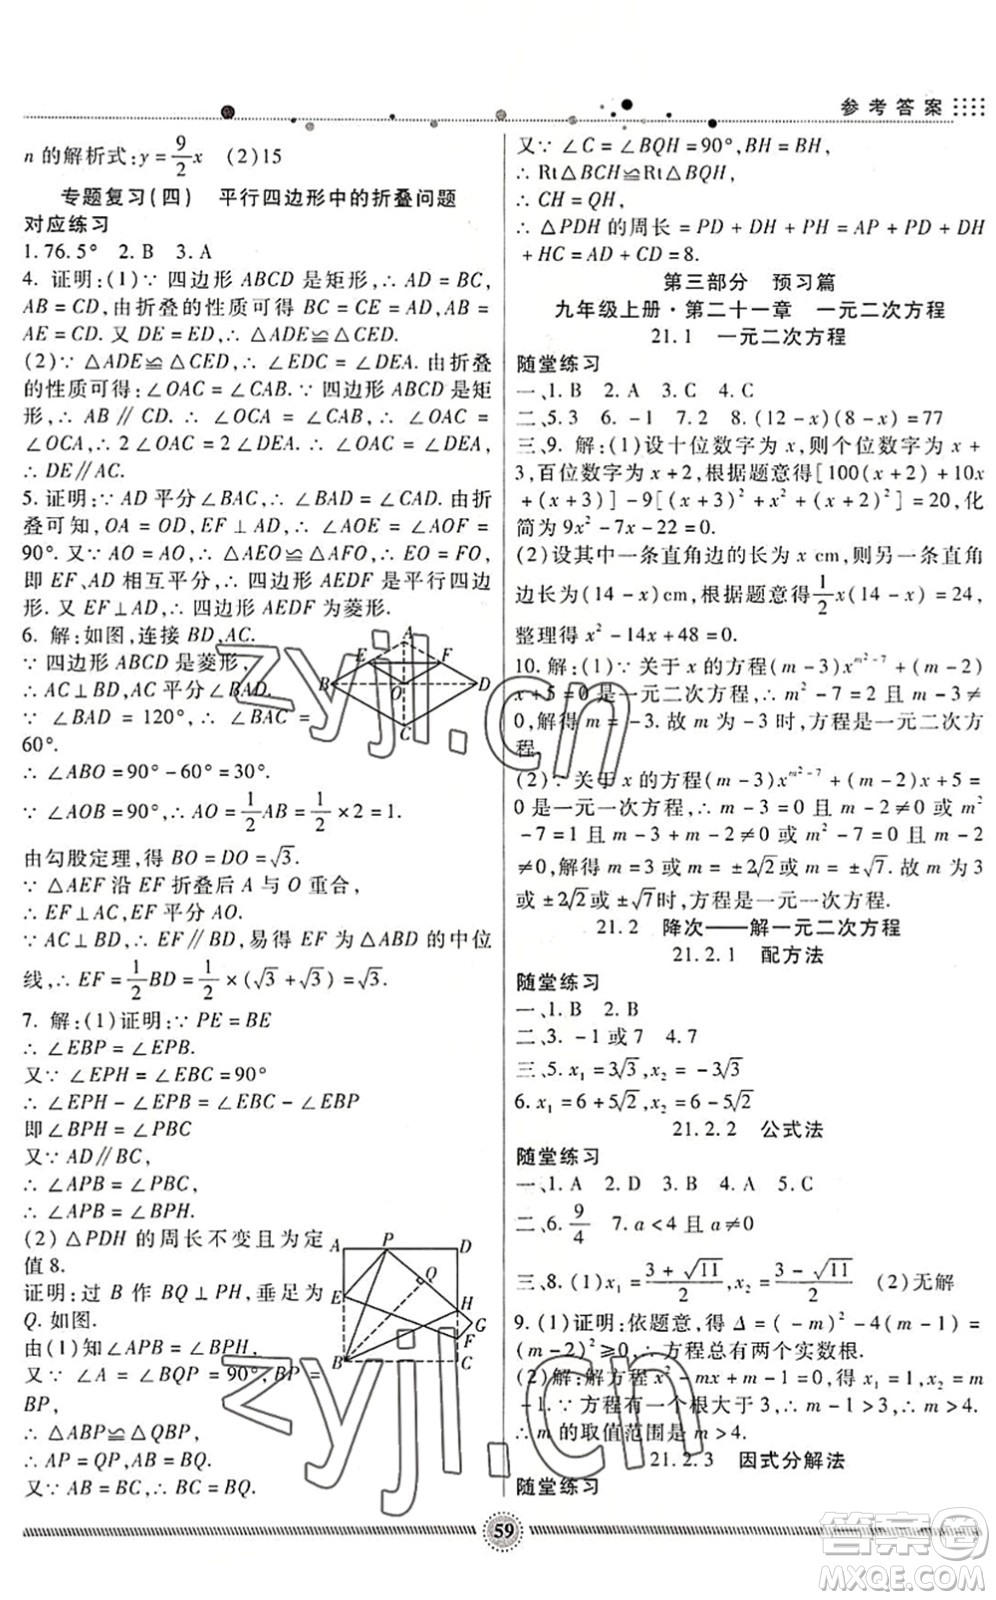 参考答案
n 的解析式:y=9/2x (2)15
专题复习(四) 平行四边形中的折叠问题
对应练习
1.76.5° 2.B 3.A
4. 证明:(1)∵ 四边形 ABCD 是矩形,∴ AD=BC,
AB=CD,由折叠的性质可得 BC=CE=AD,AB=
AE=CD. 又 DE=ED,∴ △ADE≌△CED.
(2)∵ △ADE≌△CED,∴ ∠EDC=∠DEA. 由折叠
的性质可得:∠OAC=∠CAB. ∵ 四边形 ABCD 是矩
形,∴ AB∥CD. ∴ ∠OCA=∠CAB,∴ ∠OAC=
∠OCA,∴ 2∠OAC=2∠DEA,∴ ∠OAC=∠DEA,
∴ DE∥AC.
5. 证明:∵ AD 平分∠BAC,∴ ∠BAD=∠CAD. 由折
叠可知,OA=OD,EF⊥AD,∴ ∠AOE=∠AOF=
90°. 又∵ AO=AO,∴ △AEO≌△AFO,∴ EO=FO,
即 EF、AD 相互平分,∴ 四边形 AEDF 是平行四边
形. 又 EF⊥AD,∴ 四边形 AEDF 为菱形.
6. 解:如图,连接 BD,AC.
∵ 四边形 ABCD 是菱形,
∴ AC⊥BD,AC 平分∠BAD,
∵ ∠BAD=120°,∴ ∠BAC=
60°.
A
E
F
B
O
D
C
∴ ∠ABO=90°-60°=30°.
∵ ∠AOB=90°,∴ AO=1/2AB=1/2×2=1.
由勾股定理,得 BO=DO=√3.
∵ △AEF 沿 EF 折叠后 A 与 O 重合,
∴ EF⊥AC,EF 平分 AO.
∵ AC⊥BD,∴ EF∥BD,易得 EF 为△ABD 的中位
线,∴ EF=1/2BD=1/2×(√3+√3)=√3.
7. 解:(1)证明:∵ PE=BE
∴ ∠EBP=∠EPB.
又∵ ∠EPH=∠EBC=90°
∴ ∠EPH-∠EPB=∠EBC-∠EBP
即∠BPH=∠PBC
又∵ AD∥BC,
∴ ∠APB=∠PBC,
∴ ∠APB=∠BPH.
(2)△PDH 的周长不变且为定
值 8.
证明:过 B 作 BQ⊥PH,垂足为
Q. 如图.
由(1)知∠APB=∠BPH,
又∵ ∠A=∠BQP=90°,BP=
BP,
A
P
D
Q
E
H
G
F
B
C
∴ △ABP≌△QBP,
∴ AP=QP,AB=BQ.
又∵ AB=BC,∴ BC=BQ.
又∵ ∠C=∠BQH=90°,BH=BH,
∴ Rt△BCH≌Rt△BQH,
∴ CH=QH,
∴ △PDH 的周长=PD+DH+PH=AP+PD+DH
+HC=AD+CD=8.
第三部分 预习篇
九年级上册·第二十一章 一元二次方程
21.1 一元二次方程
随堂练习
一、1.B 2.A 3.C 4.C
二、5.3 6.-1 7.2 8.(12-x)(8-x)=77
三、9. 解:(1)设十位数字为 x,则个位数字为 x+
3,百位数字为 x+2,根据题意得[100(x+2)+10x
+(x+3)]-9[(x+3)²+x²+(x+2)²]=20,化
简为 9x²-7x-22=0.
(2)设其中一条直角边的长为 x cm,则另一条直角
边长为(14-x)cm,根据题意得:1/2x(14-x)=24,
整理得 x²-14x+48=0.
10. 解:(1)∵ 关于 x 的方程(m-3)x^(m²-7)+(m-2)
x+5=0 是一元二次方程,∴ m²-7=2 且 m-3≠
0,解得 m=-3. 故 m 为-3 时,方程是一元二次方
程.
(2)∵ 关于 x 的方程(m-3)x^(m²-7)+(m-2)x+5=
0 是一元一次方程,∴ m-3=0 且 m-2≠0 或 m²
-7=1 且 m-3+m-2≠0 或 m²-7=0 且 m-2
≠0,解得 m=3 或 m=±2√2或 m=±√7. 故 m 为 3
或±2√2或±√7时,方程是一元一次方程.
21.2 降次——解一元二次方程
21.2.1 配方法
随堂练习
一、1.B 2.B
二、3.-1或7 4.7
三、5.x₁=3√3,x₂=-3√3
6.x₁=6+5√2,x₂=6-5√2
21.2.2 公式法
随堂练习
一、1.A 2.D 3.B 4.A 5.C
二、6.9/4 7.a<4 且 a≠0
三、8.(1)x₁=(3+√11)/2,x₂=(3-√11)/2 (2)无解
9.(1)证明:依题意,得 Δ=(-m)²-4(m-1)=
(m-2)²≥0,∴ 方程总有两个实数根.
(2)解:解方程 x²-mx+m-1=0 得 x₁=1,x₂=m
-1.∵ 方程有一个根大于 3,∴ m-1>3,∴ m>4.
∴ m 的取值范围是 m>4.
21.2.3 因式分解法
随堂练习
59
zyjl.cn
zyjl.cn
答案圈
MXQE.COM